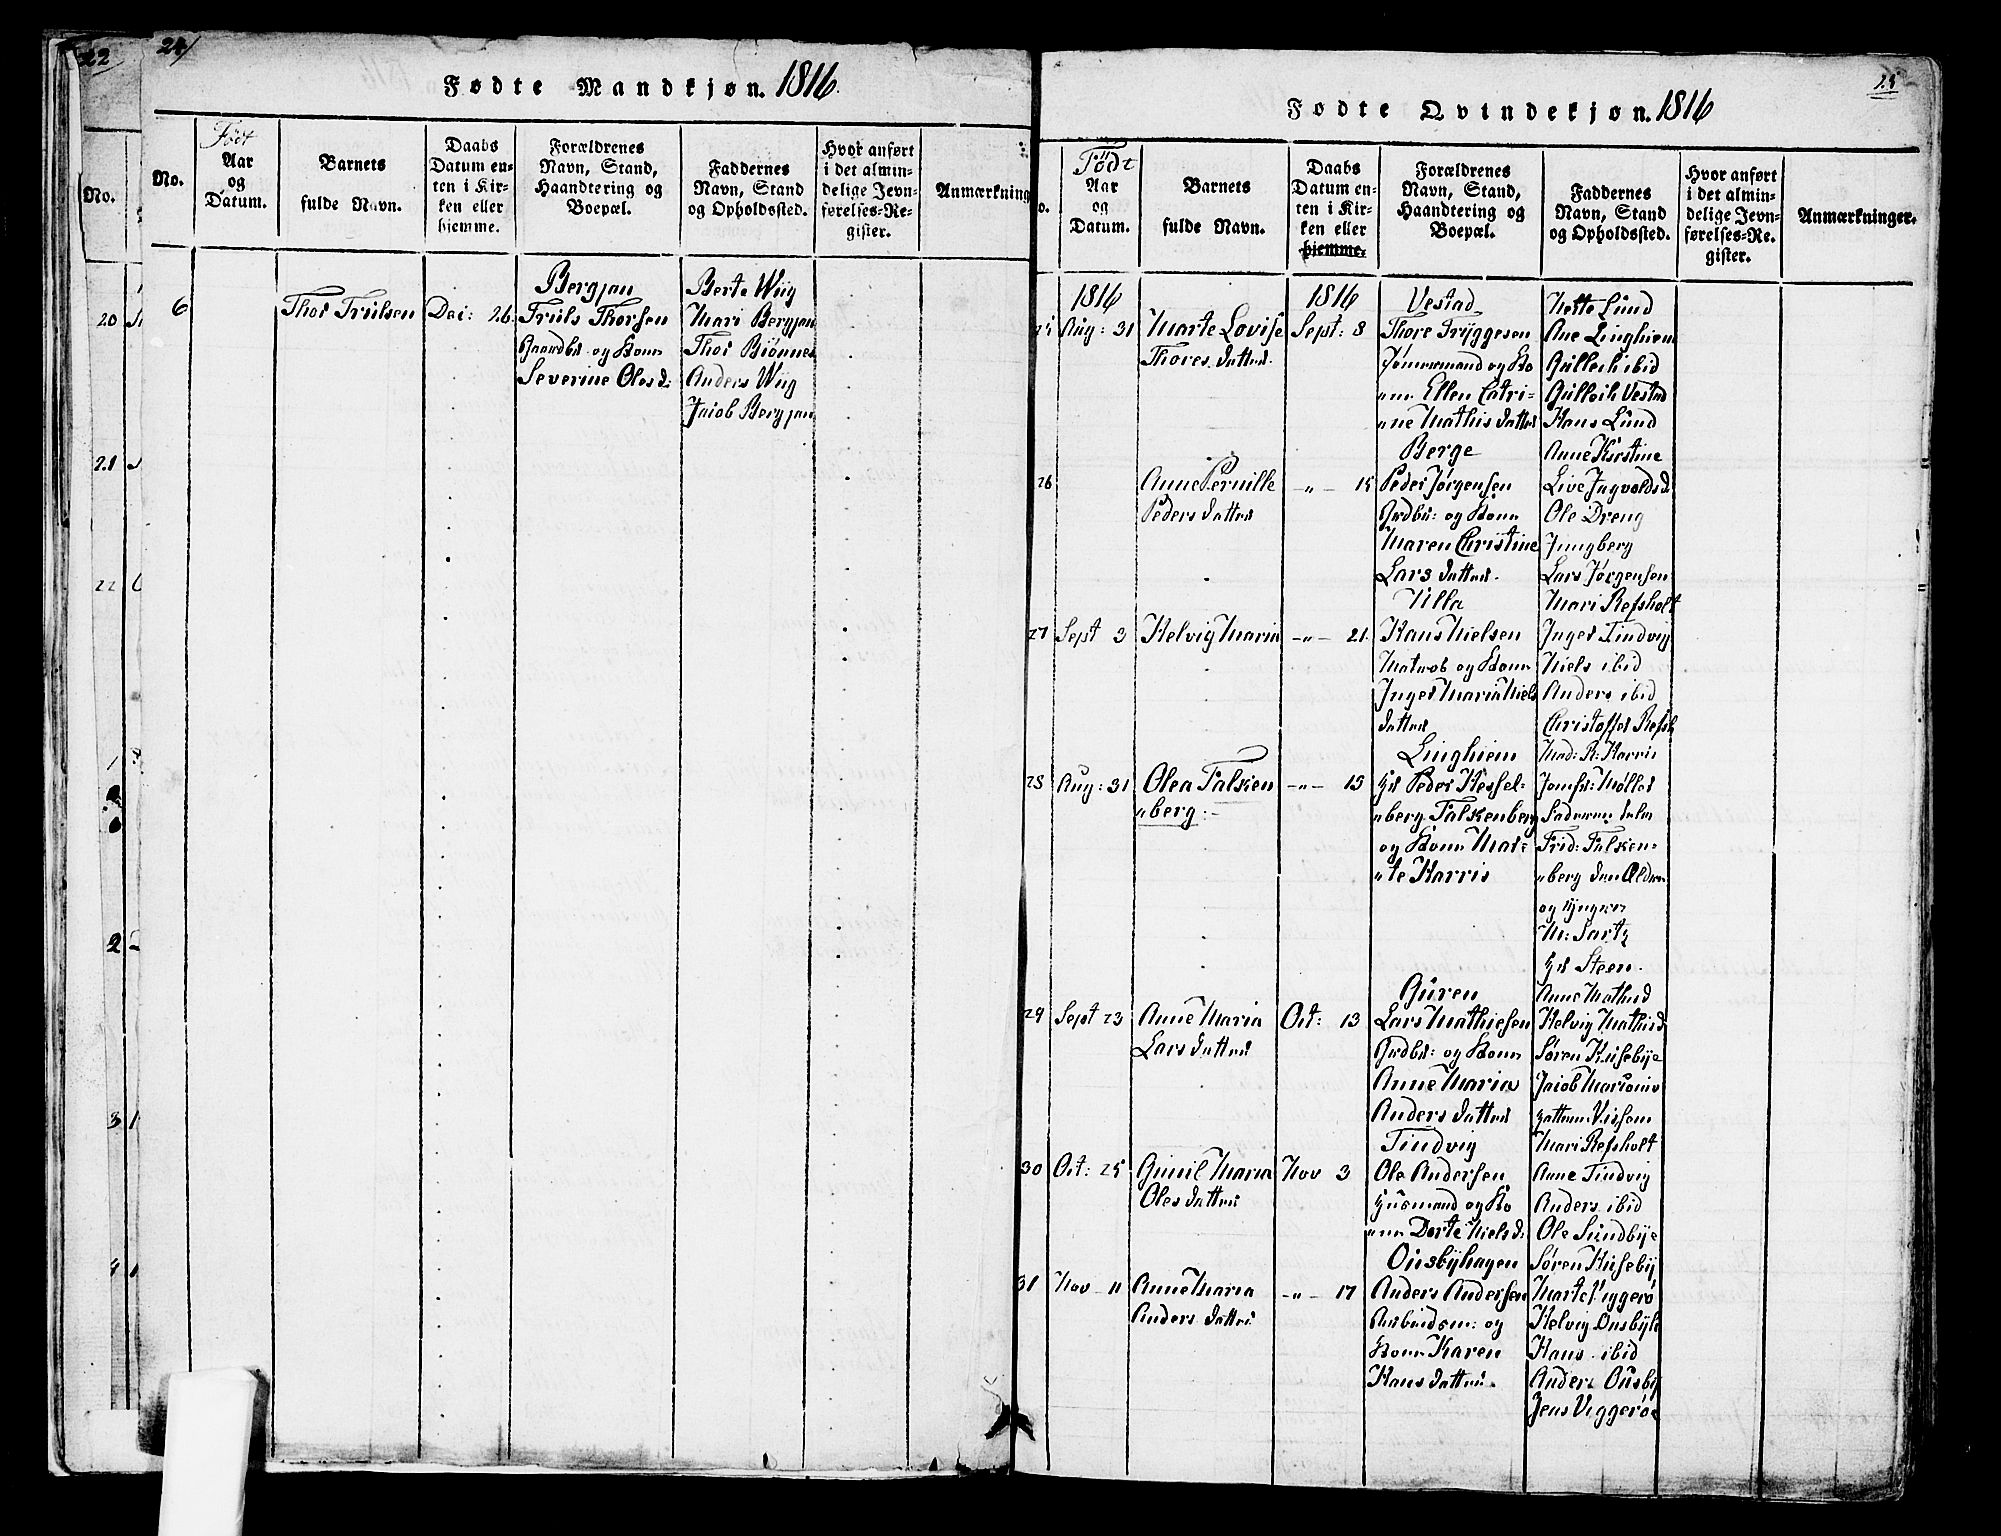 22
24
Fødte Mandkjøn. 1816.
No.
No.
Født
Aar
og
Datum.
Barnets
fulde Navn.
Daabs
Datum en-
ten i Kir-
ken eller
hjemme.
Forældrenes
Navn, Stand,
Haandtering og
Boepæl.
Faddernes
Navn, Stand
og Opholdssted.
Hvor anført
i det almin-
delige Jevn-
førelses-Re-
gister.
Anmærkning
20
21
22
2
3
4
6
Thor Trulsen
Dec: 26.
Bergjan
Truls Thorsen
Gaardbr. og Kone
Severine Olesd:
Berte Wiig
Mari Bergjan
Thor Biønnes
Anders Wiig
Jacob Bergjan
25
Fødte Qvindekjøn. 1816
o.
Født
Aar
og
Datum.
Barnets
fulde Navn.
Daabs
Datum en-
ten i Kir-
ken eller
hjemme.
Forældrenes
Navn, Stand,
Haandtering og
Boepæl.
Faddernes
Navn, Stand
og Opholdssted.
Hvor anført
i det almin-
delige Jevn-
førelses-Re-
gister.
Anmærkninger.
1816
25 Aug: 31
Marte Lovise
Thores datter.
1816
Sept: 8
Vestad
Thore Tryggesen
Tømmermand og Ko
"ne Ellen Catri-
"ne Mathis datter
Mette Lund
Ane Linghiem
Gulleik ibid
Gulleik Vestad
Hans Lund
26
Anne Pernille
Peders datter
-"- 15
Berge
Peder Jørgensen
Grdbr: og Kone
Maren Christine
Lars datter.
Anne Kirstine
Live Ingvoldsd
Ole Dreng
Jungberg
Lars Jørgensen
27 Sept 3
Helvig Maria
-"- 21.
Ulla
Hans Nielsen
Matros og Kone
Inger Maria Niels
datter
Mari Refsholt
Inger Tindvig
Niels ibid
Anders ibid
Christoffer Refsh
28 Aug: 31
Olea Falken
"berg:-
-"- 15
Linghiem
Hr Peder Hessel-
"berg Falkenberg
og Kone Mar-
"te Harris
Mad: R: Harris
Jomfr: Møller
Frid: Falken-
"berg den Ældre
og Yngre
M: Sartz
Hr Steen.
29 Sept 23
Anne Maria
Lars datter
Oct: 13
Buren
Lars Mathiesen
Grdbr: og Kone
Anne Maria
Anders datter
Anne Mathisd
Helvig Mathisd
Søren Husebye
30 Oct: 25
Gunil Maria
Oles datter
Nov 3
Tindvig
Ole Andersen
Huusmand og Ko
"ne Dorte Nielsd:
Mari Refsholt
Anne Tindvig
Anders ibid
Ole Sundbye
31 Nov 11
Anne Maria
Anders datter
-"- 17
Ounsbyhagen
Anders Andersen
Arbeidsm: og
Kone Karen
Hans datter.
Søren Huseby
Marte Viggerø
Helvig Ounsbyh
Hans ibid
Anders Ounsby
Jens Viggerøe